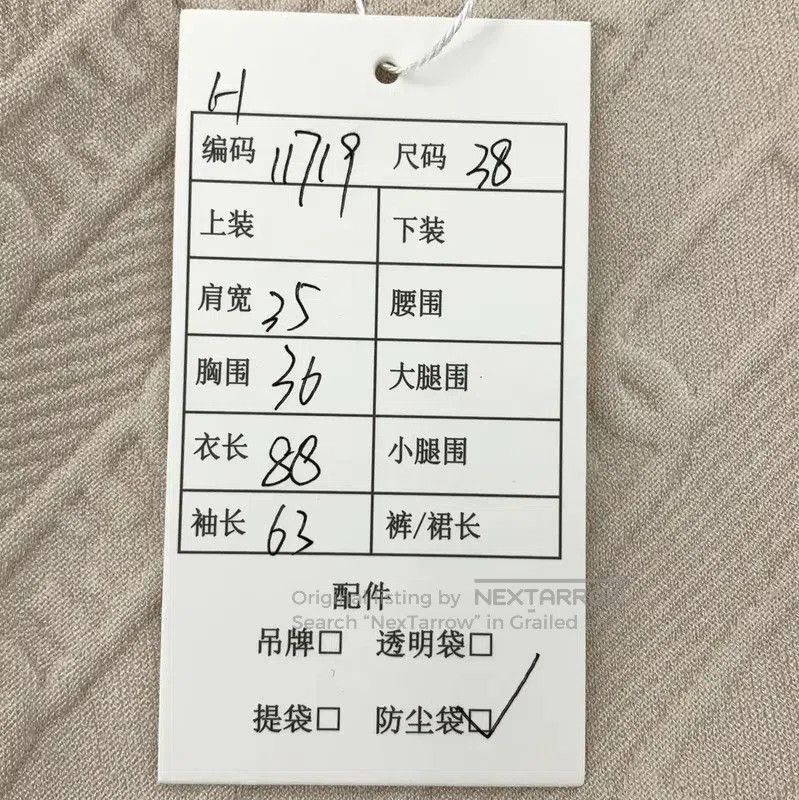 H
编码 11719 尺码 38
上装 下装
肩宽 35 腰围
胸围 36 大腿围
衣长 88 小腿围
袖长 63 裤/裙长
配件
Original listing by NEXTARROW
Search "NexTarrow" in Grailed
吊牌□ 透明袋□
提袋□ 防尘袋□